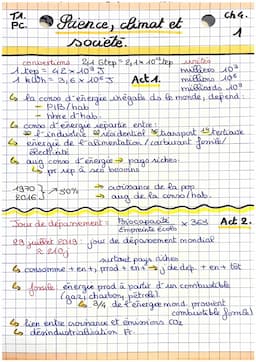 T1. PC.
Science, climat et société.
Ch 4.
1
conversions 2,1 Gtep = 2,1 x 10⁹ tep unités
1 tep = 42 x 10⁹ J
1 kWh = 3,6 x 10⁶ J
Act 1.
milliers 10³
millions 10⁶
milliards 10⁹
↳ la conso d'énergie inégale ds le monde, dépend :
- PIB/hab
- nbre d'hab.
↳ conso d'énergie répartie entre :
l'industrie résidentiel transport tertiaire
↳ énergie de l'alimentation / carburant fossile / électricité
↳ aug conso d'énergie → pays riches.
↳ pr rep à ses besoins
1970
2016
↗ 50% → croissance de la pop
→ aug de la conso/hab.
Jour de dépassement : Biocapacité / Empreinte Ecolo x 365
Act 2.
29 juillet 2019 : jour de dépassement mondial
≈ 210 j
surtout pays riches
↳ consomme + en +, prod + en + → j de dép. + en + tôt
↳ fossile : énergie prod à partir d'un combustible (gaz, charbon, pétrole)
↳ 3/4 de l'énergie mond. provient combustible fossile)
↳ lien entre croissance et émissions CO2
↳ désindustrialisation Fr